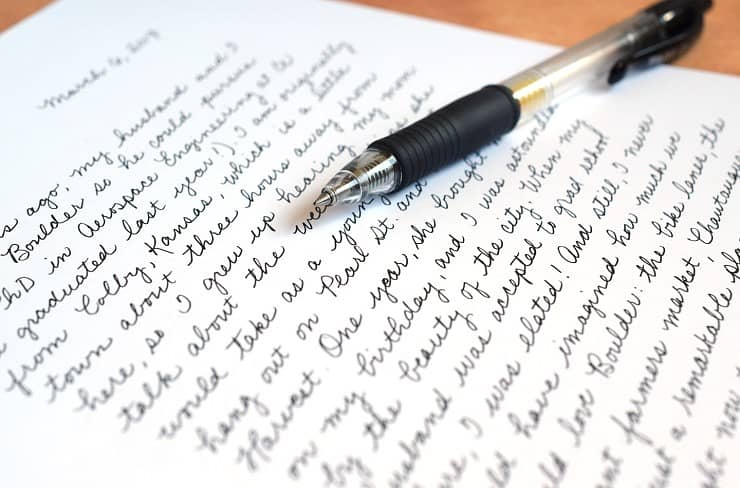 March 6,
s ago, my husband and I
Boulder so he could pursue
PhD in Aerospace Engineering at CU
graduated last year!). I am originally
from Colby, Kansas, which is a little
town about three hours away from
here, so I grew up hearing my mom
talk about the
would take as a young
hang out on Pearl St. and
Harvest. One year, she brought
on my birthday and I was astounde
by the beauty of the city. When my
usband was accepted to grad school
re, I was elated! And still, I never
ld have imagined how much we
ld love Boulder: the bike lanes, the
nt farmers market, Chautauqua
st a remarkable pla
ght now